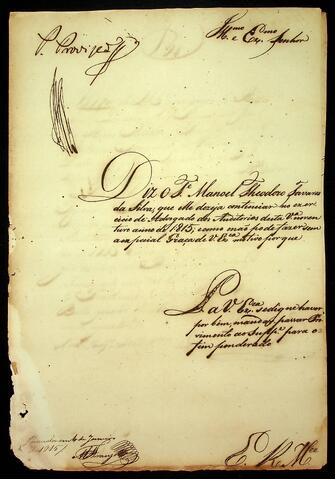 P. Provizão
Illmo e Exmo Senhor
Diz o Pe Manoel Theodoro Tavares
da Silva, que elle dezeja continuar no exer
cicio de Advogado dos Auditorios desta Va no corren
te anno de 1815, e como não pode fazer sem
a especial Graça de V. Exca motivo por que
P. a V. Exca se digne haver
por bem, mandar passar Pro
vimento ao Suppe para o
fim ponderado
de Janeiro
1815
E. R. Mce